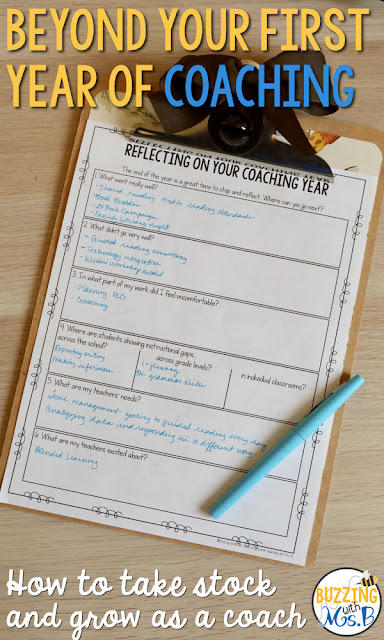 BEYOND YOUR FIRST
YEAR OF COACHING
REFLECTING ON YOUR COACHING YEAR
The end of the year is a great time to stop and reflect. Where can you go next?
1. What went really well?
- Shared reading tied to reading standards
- Book
- Book Campaign
- Parent Literacy night
2. What didn't go very well?
- Guided reading
- Technology integration
- Writer's Workshop model
3. In what part of my work did I feel uncomfortable?
- Planning PLCs
- Coaching
4. Where are students showing instructional gaps...
across the school?
across grade levels?
in individual classrooms?
Expository writing
making inferences
1 - fluency
grammar skills
5. What are my teachers' needs?
time management - getting to guided reading every day
analyzing data and responding in a different way
6. What are my teachers excited about?
Blended Learning
How to take stock
and grow as a coach
BUZZING
with
Ms. B